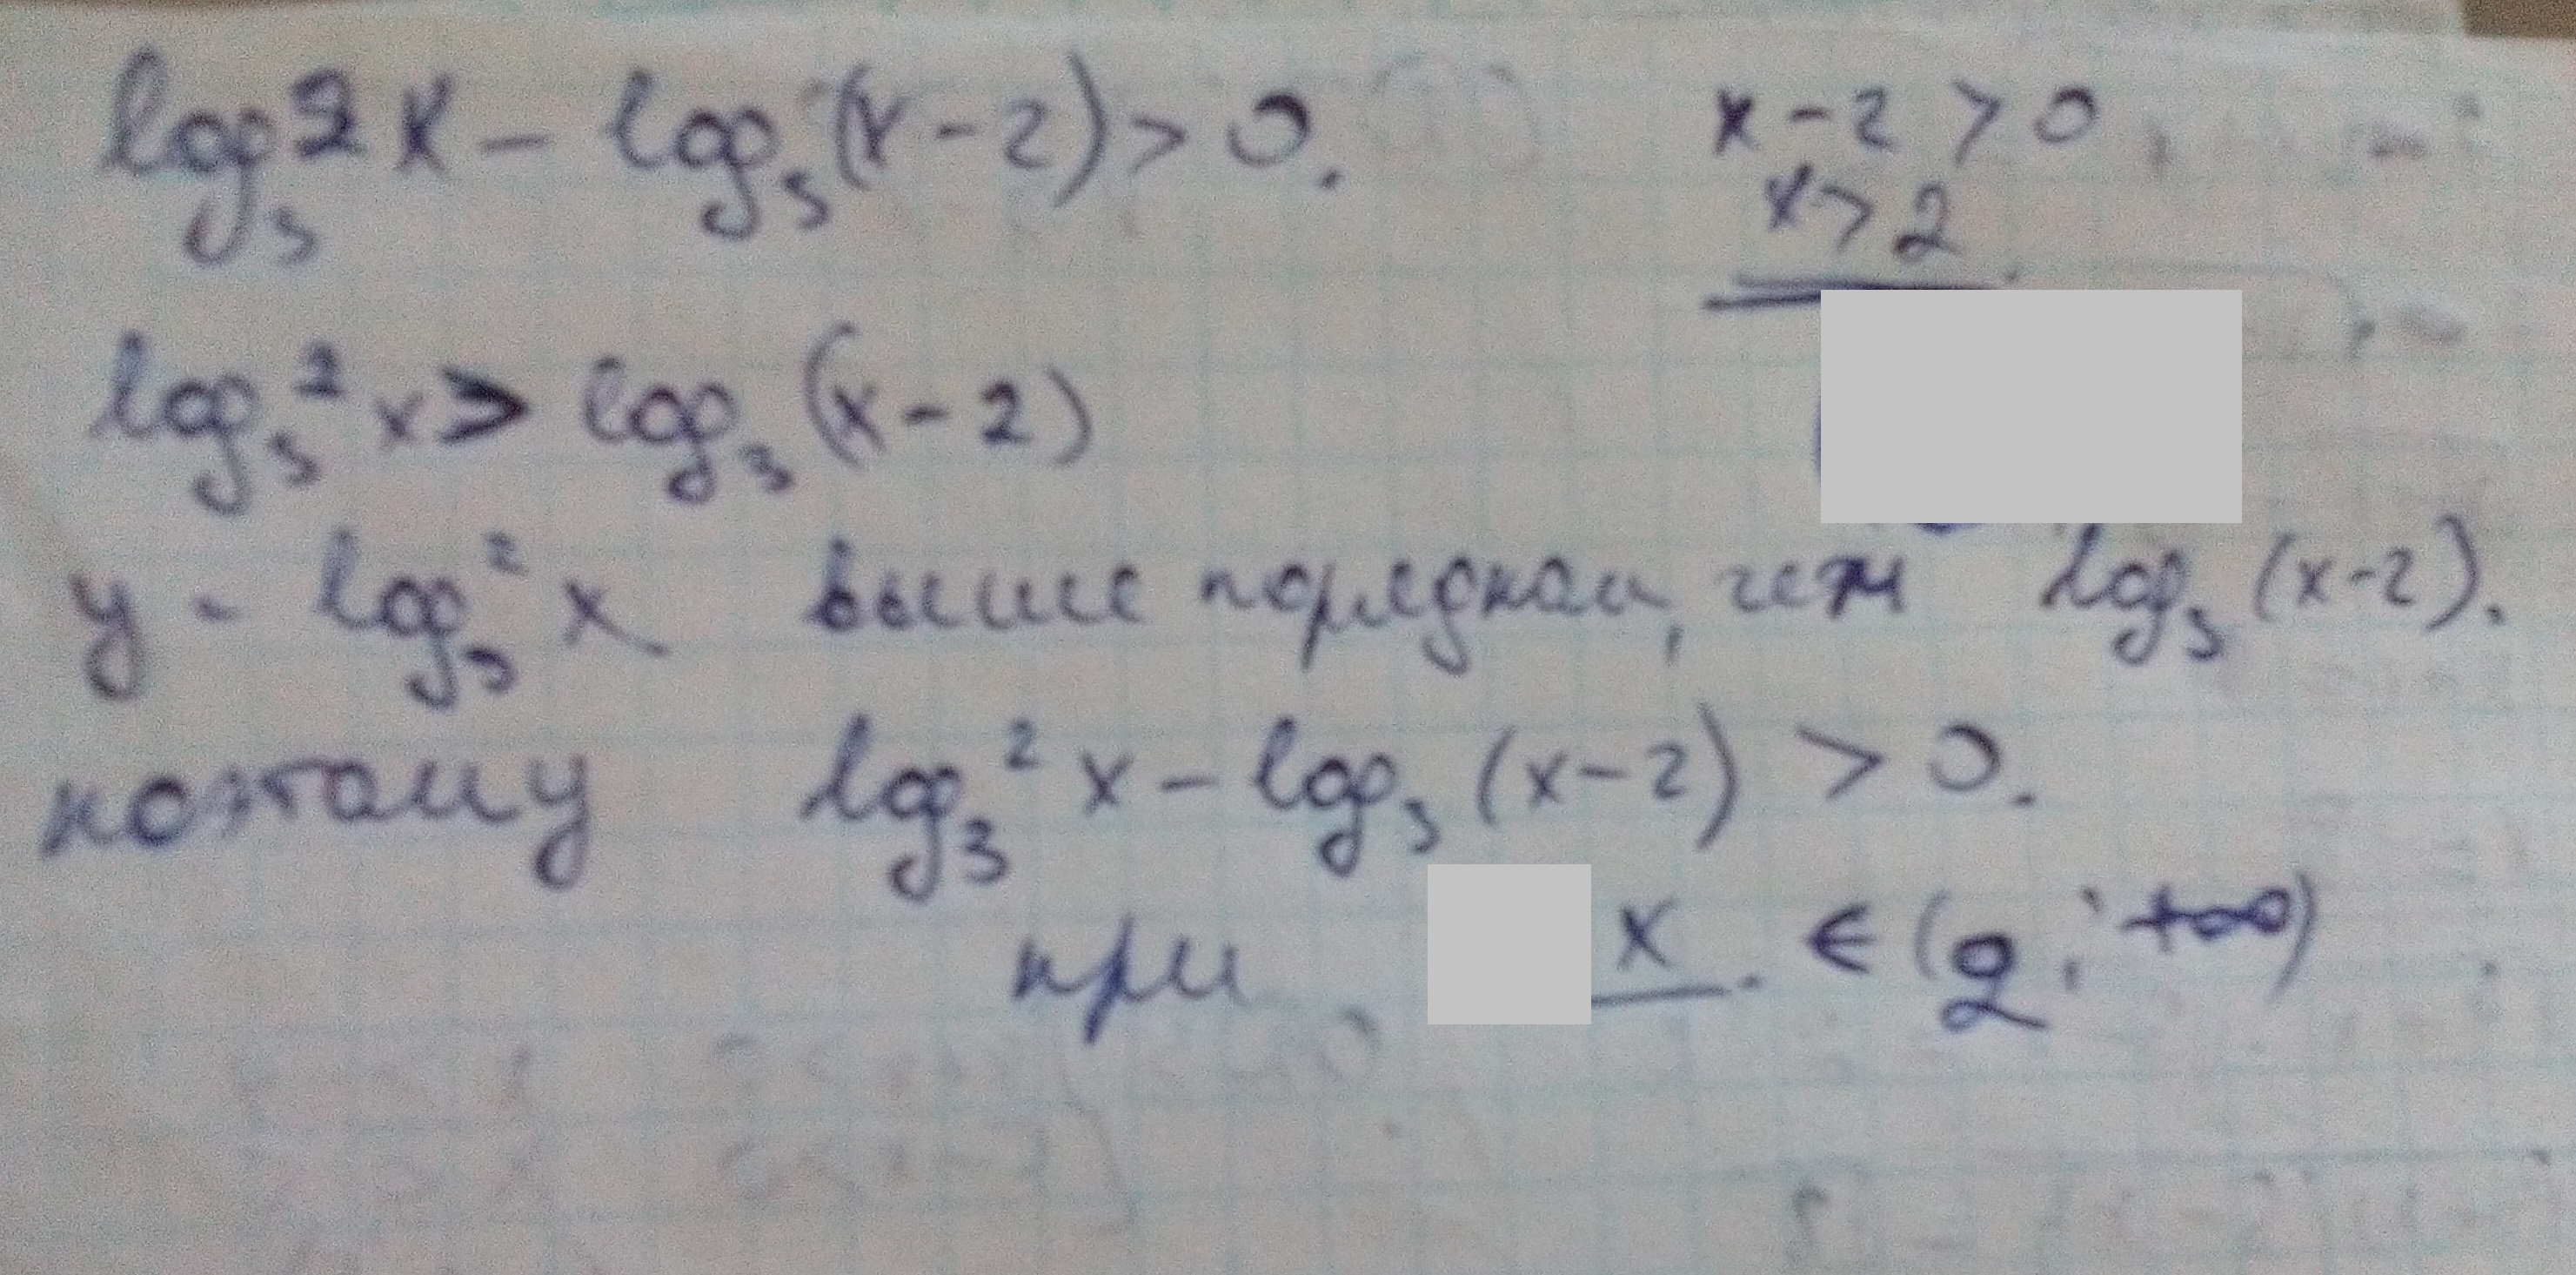 log₃²x - log₃(x-2) > 0.
x-2 > 0
x > 2
log₃²x > log₃(x-2)
y = log₃²x выше порядком, чем log₃(x-2).
поэтому log₃²x - log₃(x-2) > 0.
при x ∈ (2; +∞)